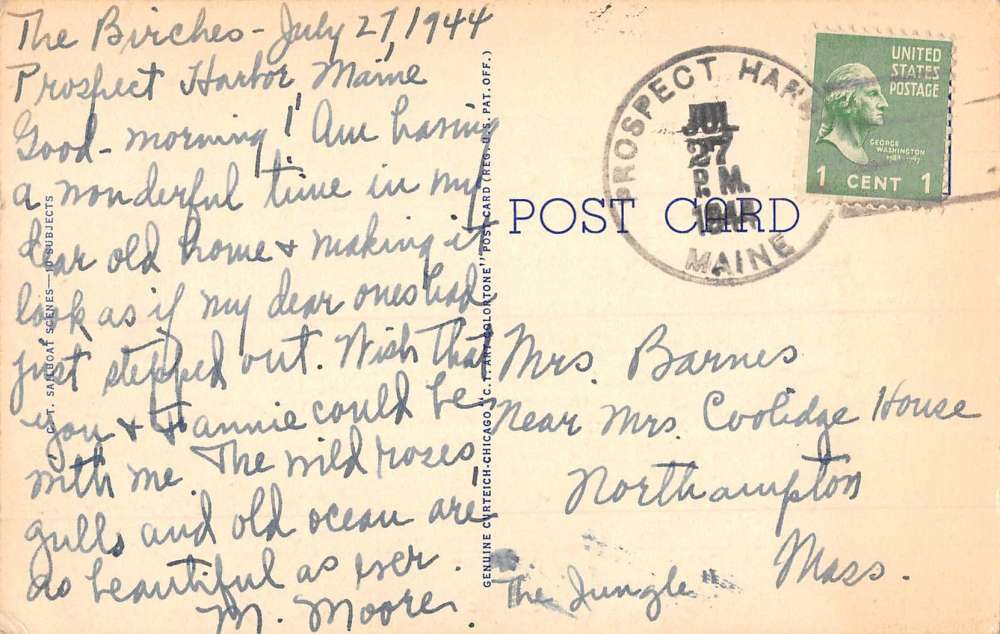 The Birches - July 27, 1944
Prospect Harbor, Maine
Good-morning! Am having
a wonderful time in my
dear old home & making it
look as if my dear ones had
just stepped out. Wish that
you & Fannie could be
with me. The wild roses,
gulls and old ocean are
as beautiful as ever.
M. Moore.
C.T. SAILBOAT SCENES—10 SUBJECTS
GENUINE CURTEICH-CHICAGO "C.T. ART-COLORTONE" POST CARD (REG. U.S. PAT. OFF.)
POST CARD
PROSPECT HARB
JUL
27
P.M.
1944
MAINE
UNITED
STATES
POSTAGE
GEORGE
WASHINGTON
1 CENT 1
Mrs. Barnes
Near Mrs Coolidge House
Northampton
Mass.
"The Jungle"